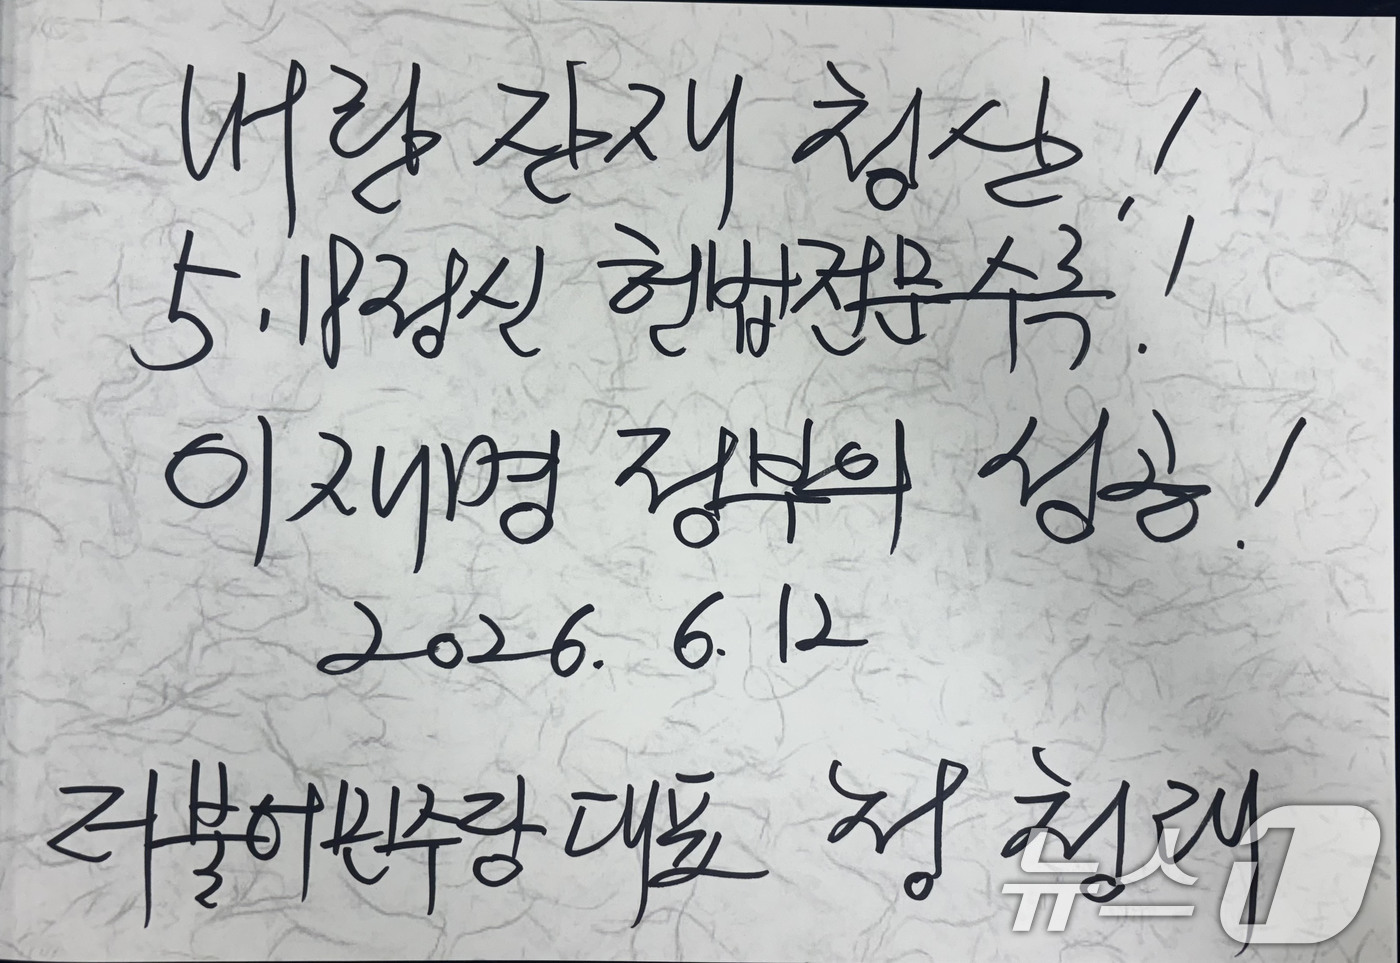 내란 잔재 청산!
5.18정신 헌법전문 수록!
이재명 정부의 성공!
2026. 6. 12
더불어민주당 대표 정청래
뉴스1